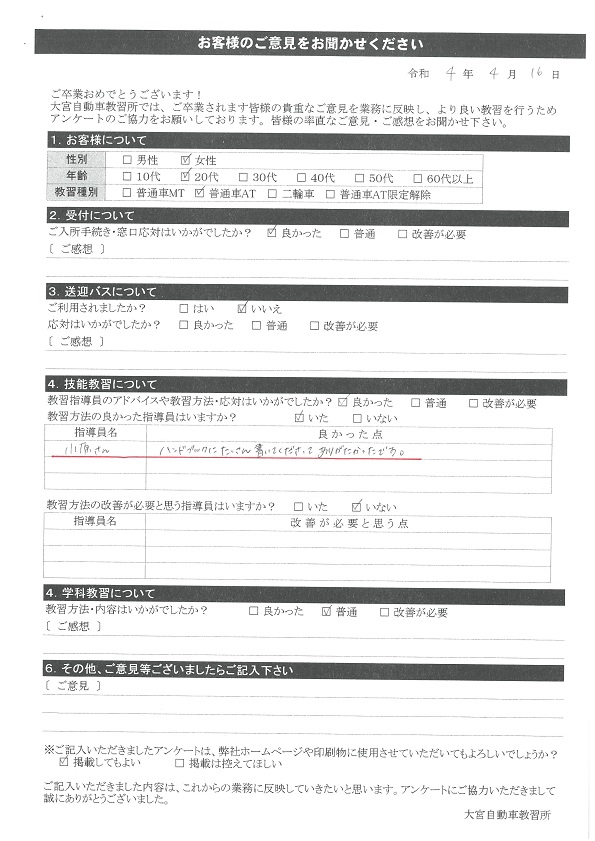 お客様のご意見をお聞かせください
令和 4 年 4 月 16 日
ご卒業おめでとうございます！
大宮自動車教習所では、ご卒業されます皆様の貴重なご意見を業務に反映し、より良い教習を行うため
アンケートのご協力をお願いしております。皆様の率直なご意見・ご感想をお聞かせ下さい。
1. お客様について
性別 □ 男性 ☑ 女性
年齢 □ 10代 ☑ 20代 □ 30代 □ 40代 □ 50代 □ 60代以上
教習種別 □ 普通車MT ☑ 普通車AT □ 二輪車 □ 普通車AT限定解除
2. 受付について
ご入所手続き・窓口応対はいかがでしたか？ ☑ 良かった □ 普通 □ 改善が必要
〔 ご感想 〕
3. 送迎バスについて
ご利用されましたか？ □ はい ☑ いいえ
応対はいかがでしたか？ □ 良かった □ 普通 □ 改善が必要
〔 ご感想 〕
4. 技能教習について
教習指導員のアドバイスや教習方法・応対はいかがでしたか？ ☑ 良かった □ 普通 □ 改善が必要
教習方法の良かった指導員はいますか？ ☑ いた □ いない
指導員名 良かった点
小原さん ハンドブックにたくさん書いてくださって ありがたかったです。
教習方法の改善が必要と思う指導員はいますか？ □ いた ☑ いない
指導員名 改善が必要と思う点
4. 学科教習について
教習方法・内容はいかがでしたか？ □ 良かった ☑ 普通 □ 改善が必要
〔 ご感想 〕
6. その他、ご意見等ございましたらご記入下さい
〔 ご意見 〕
※ご記入いただきましたアンケートは、弊社ホームページや印刷物に使用させていただいてもよろしいでしょうか？
☑ 掲載してもよい □ 掲載は控えてほしい
ご記入いただきました内容は、これからの業務に反映していきたいと思います。アンケートにご協力いただきまして
誠にありがとうございました。
大宮自動車教習所